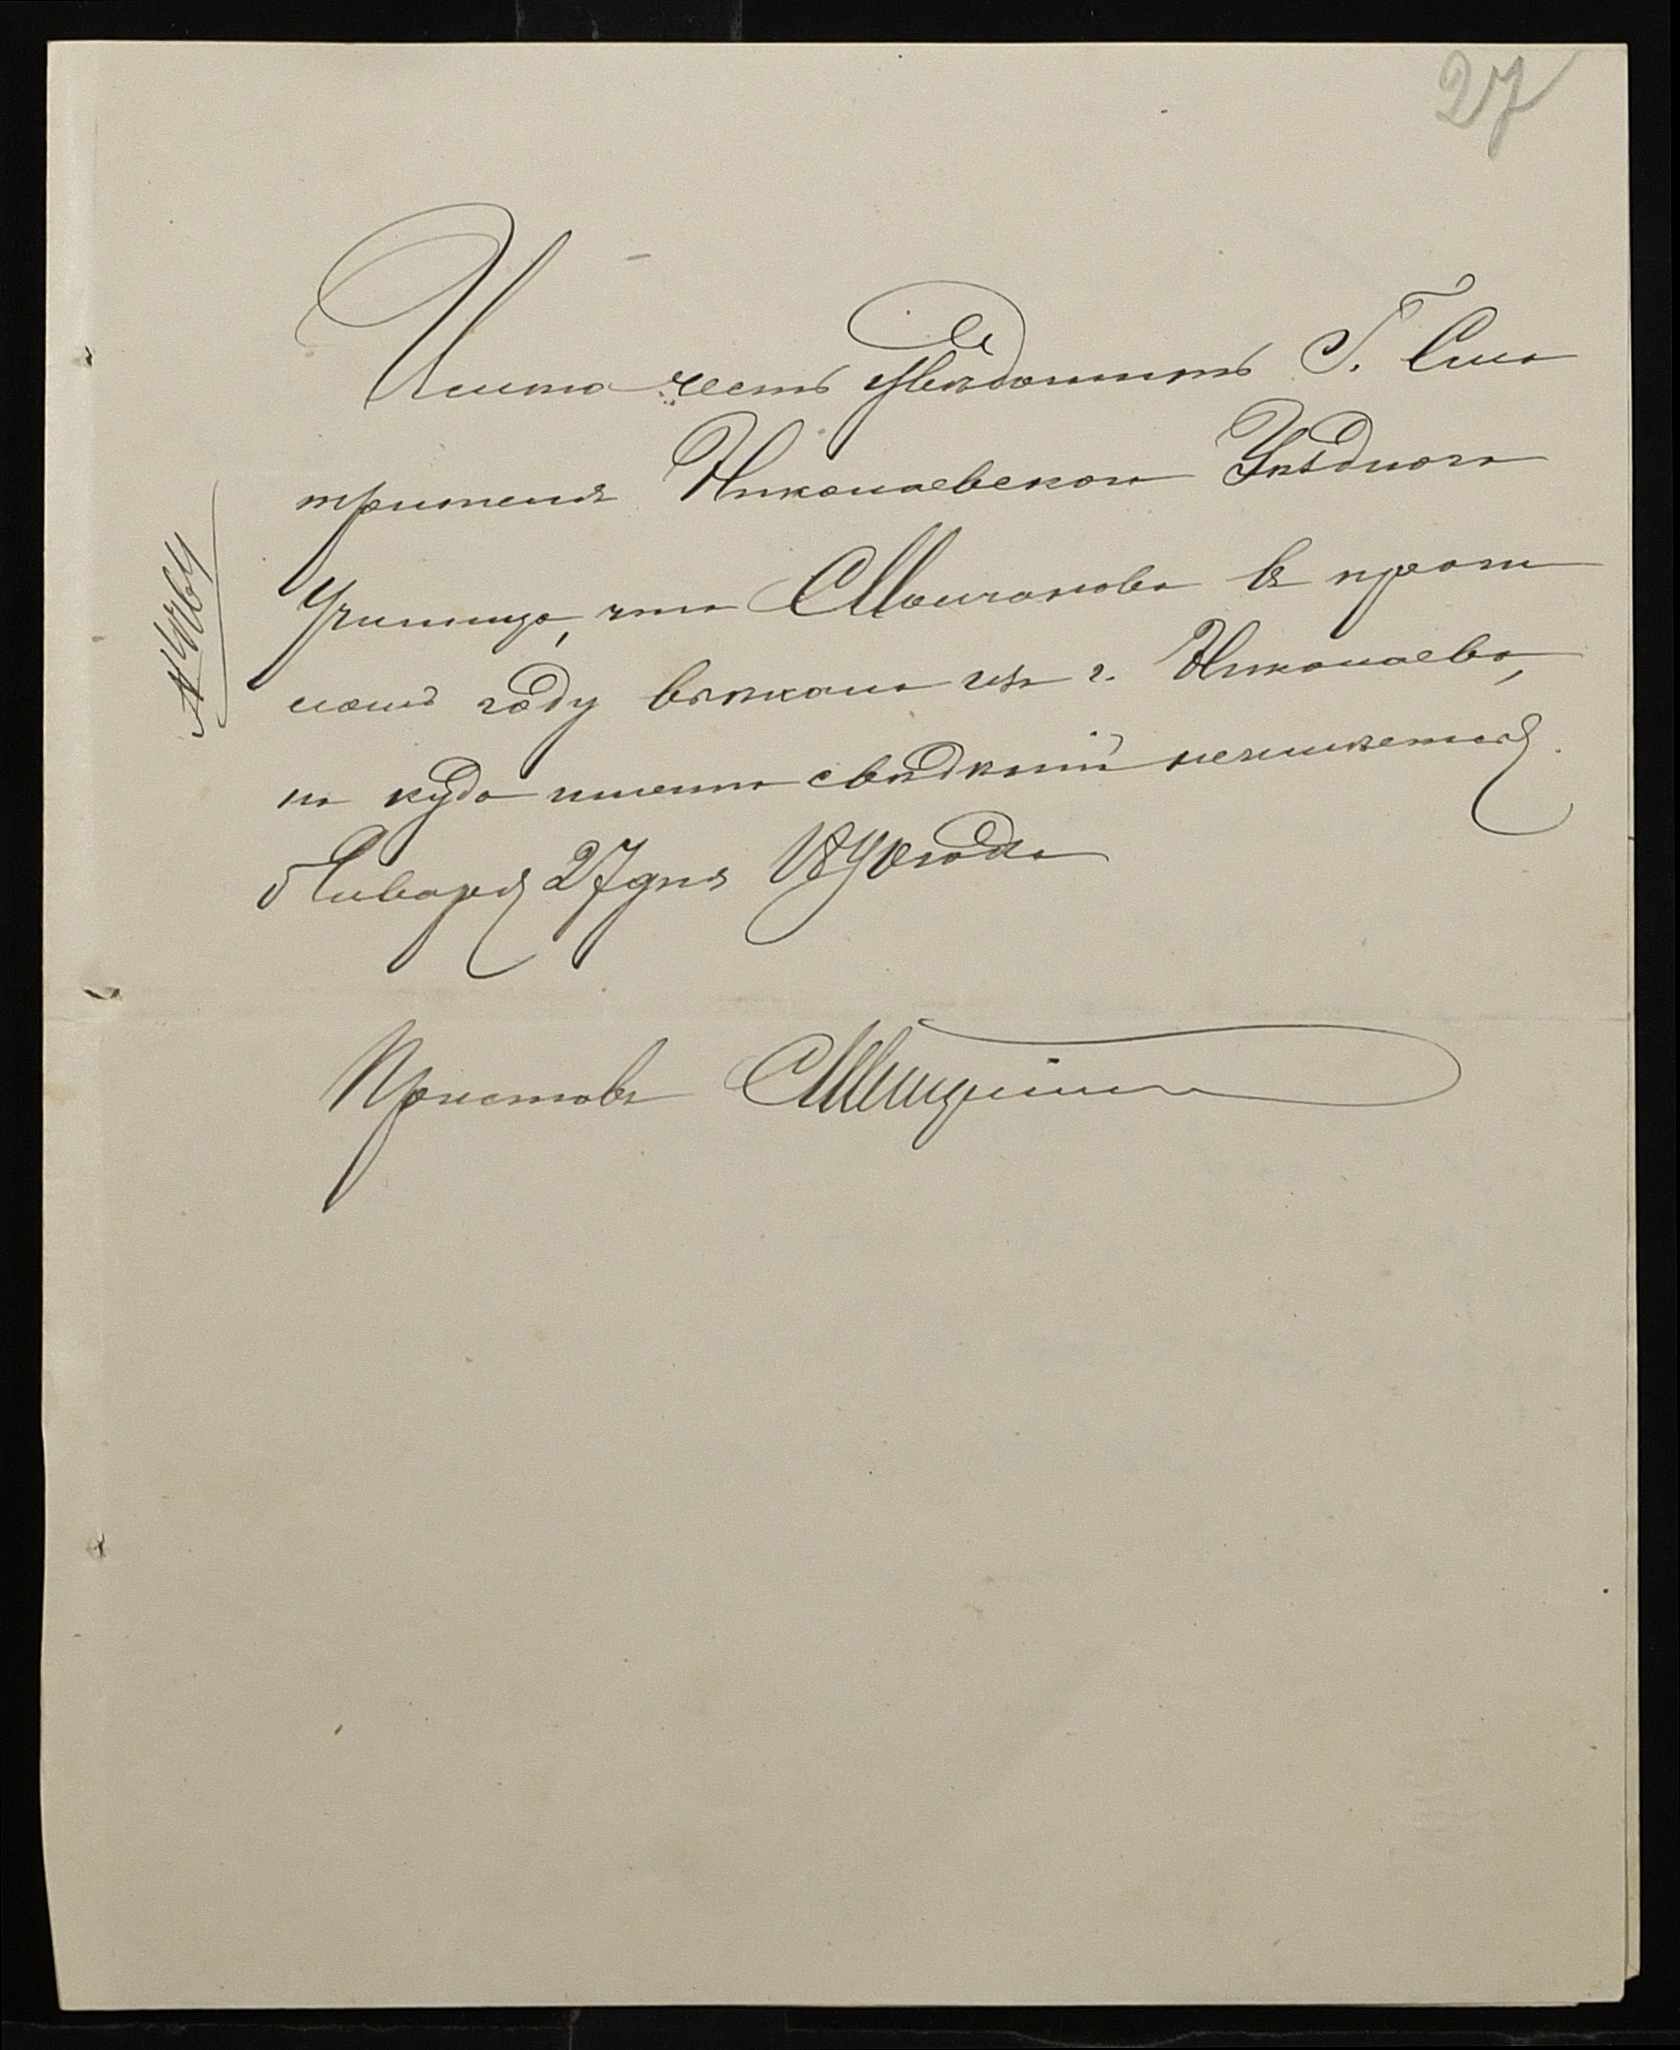 27
Имѣю честь увѣдомить Г. Смо
трителя Николаевскаго Уѣзднаго
Училища, что Молчанова въ прош
ломъ году выѣхала изъ г. Николаева,
но куда именно свѣдѣній неимѣется.
Января 27 дня 1890 года
Приставъ